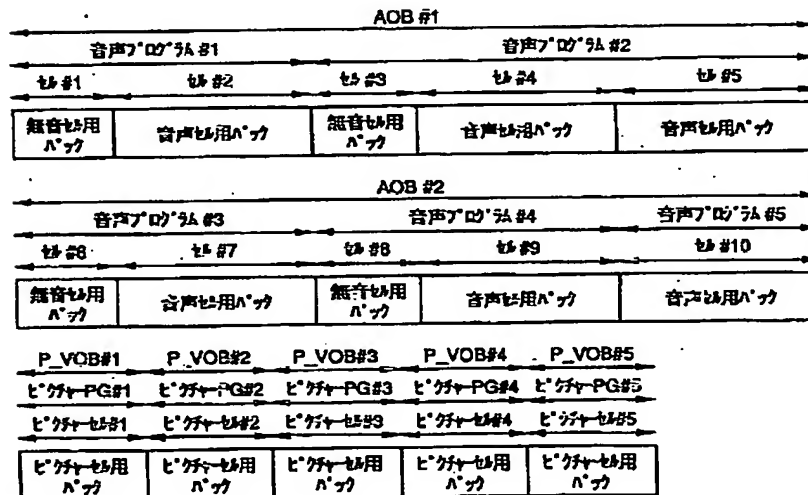 AOB #1
音声プログラム #1 音声プログラム #2
セル #1 セル #2 セル #3 セル #4 セル #5
無音セル用パック 音声セル用パック 無音セル用パック 音声セル用パック 音声セル用パック
AOB #2
音声プログラム #3 音声プログラム #4 音声プログラム #5
セル #6 セル #7 セル #8 セル #9 セル #10
無音セル用パック 音声セル用パック 無音セル用パック 音声セル用パック 音声セル用パック
P_VOB#1 P_VOB#2 P_VOB#3 P_VOB#4 P_VOB#5
ピクチャーPG#1 ピクチャーPG#2 ピクチャーPG#3 ピクチャーPG#4 ピクチャーPG#5
ピクチャーセル#1 ピクチャーセル#2 ピクチャーセル#3 ピクチャーセル#4 ピクチャーセル#5
ピクチャーセル用パック ピクチャーセル用パック ピクチャーセル用パック ピクチャーセル用パック ピクチャーセル用パック